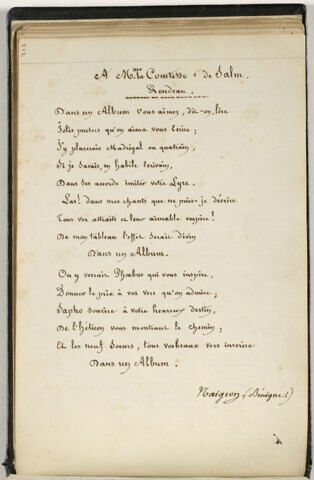 A M.me la Comtesse de Salm.
Rondeau.
Dans un Album vous aimez, dit-on, lire
Jolis pensers qu'on aima vous écrire;
J'y placerais Madrigal ou quatrain,
Si je savais, en habile écrivain,
Dans ses accords imiter votre Lyre.
Las! dans mes chants que ne puis-je décrire
Tous vos attraits et leur aimable empire!
De mon tableau l'effet serait divin
Dans un Album.
On y verrait Phœbus qui vous inspire,
Donner le prix à vos vers qu'on admire;
Sapho sourire à votre heureux destin,
De l'hélicon vous montrant le chemin;
Et les neuf Sœurs, tous vos beaux vers inscrire
Dans un Album.
Naigeon (Bénigne.)